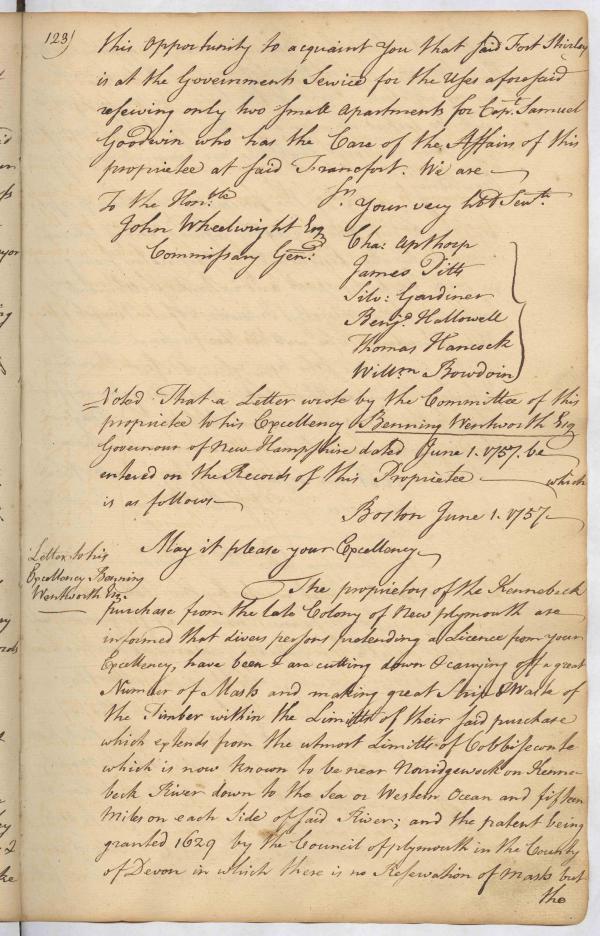 123)
this Opportunity to acquaint You that said Fort Shirley
is at the Governments Service for the Uses aforesaid
reserving only two small Apartments for Capt. Samuel
Goodwin who has the Care of the Affairs of this
proprietee at said Francfort. We are
Sr.
To the Honble
Your very hble Servts.
John Wheelwright Esq
Commissary Genl.
Cha: Apthorp
James Pitts
Silv: Gardiner
Benja. Hallowell
Thomas Hancock
Willm Bowdoin
Voted That a Letter wrote by the Committee of this
proprietee to his Excellency Benning Wentworth Esq
Governour of New Hampshire dated June 1. 1757. be
entered on the Records of this Proprietee which
is as follows
Boston June 1. 1757.
Letter to his
Excellency Benning
Wentworth Esq.
May it please your Excellency
The proprietors of the Kennebeck
purchase from the late Colony of New plymouth are
informed that divers persons pretending a Licence from your
Excellency, have been & are cutting down & carrying off a great
Number of Masts and making great Strip & Waste of
the Timber within the Limitts of their said purchase
which extends from the utmost Limitts of Cobbiseconte
which is now known to be near Noridgewock on Kenne-
beck River down to the Sea or Western Ocean and fifteen
Miles on each Side of said River; and the patent being
granted 1629 by the Council of plymouth in the County
of Devon in which there is no Reservation of Masts but
the